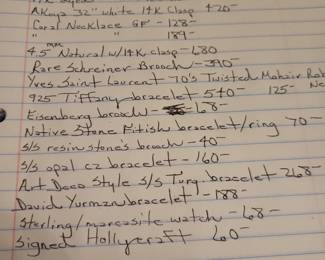 Akoya 32" white 14K Clasp 420-
Coral Necklace GF - 128-
" " 189-
4.5 mm Natural w/14K clasp - 680
Rare Schreiner Brooch - 390-
Yves Saint Laurent 70's Twisted Mohair Rob
925 Tiffany bracelet 540- 125- Ne
Eisenberg brooch - 168-
Native Stone Fitish bracelet/ring 70-
s/s resin stone's brooch - 40-
s/s opal cz bracelet - 160-
Art Deco Style s/s Turq bracelet 268-
David Yurman bracelet 1-188-
Sterling/marcasite watch - 68-
Signed Hollycraft 60-